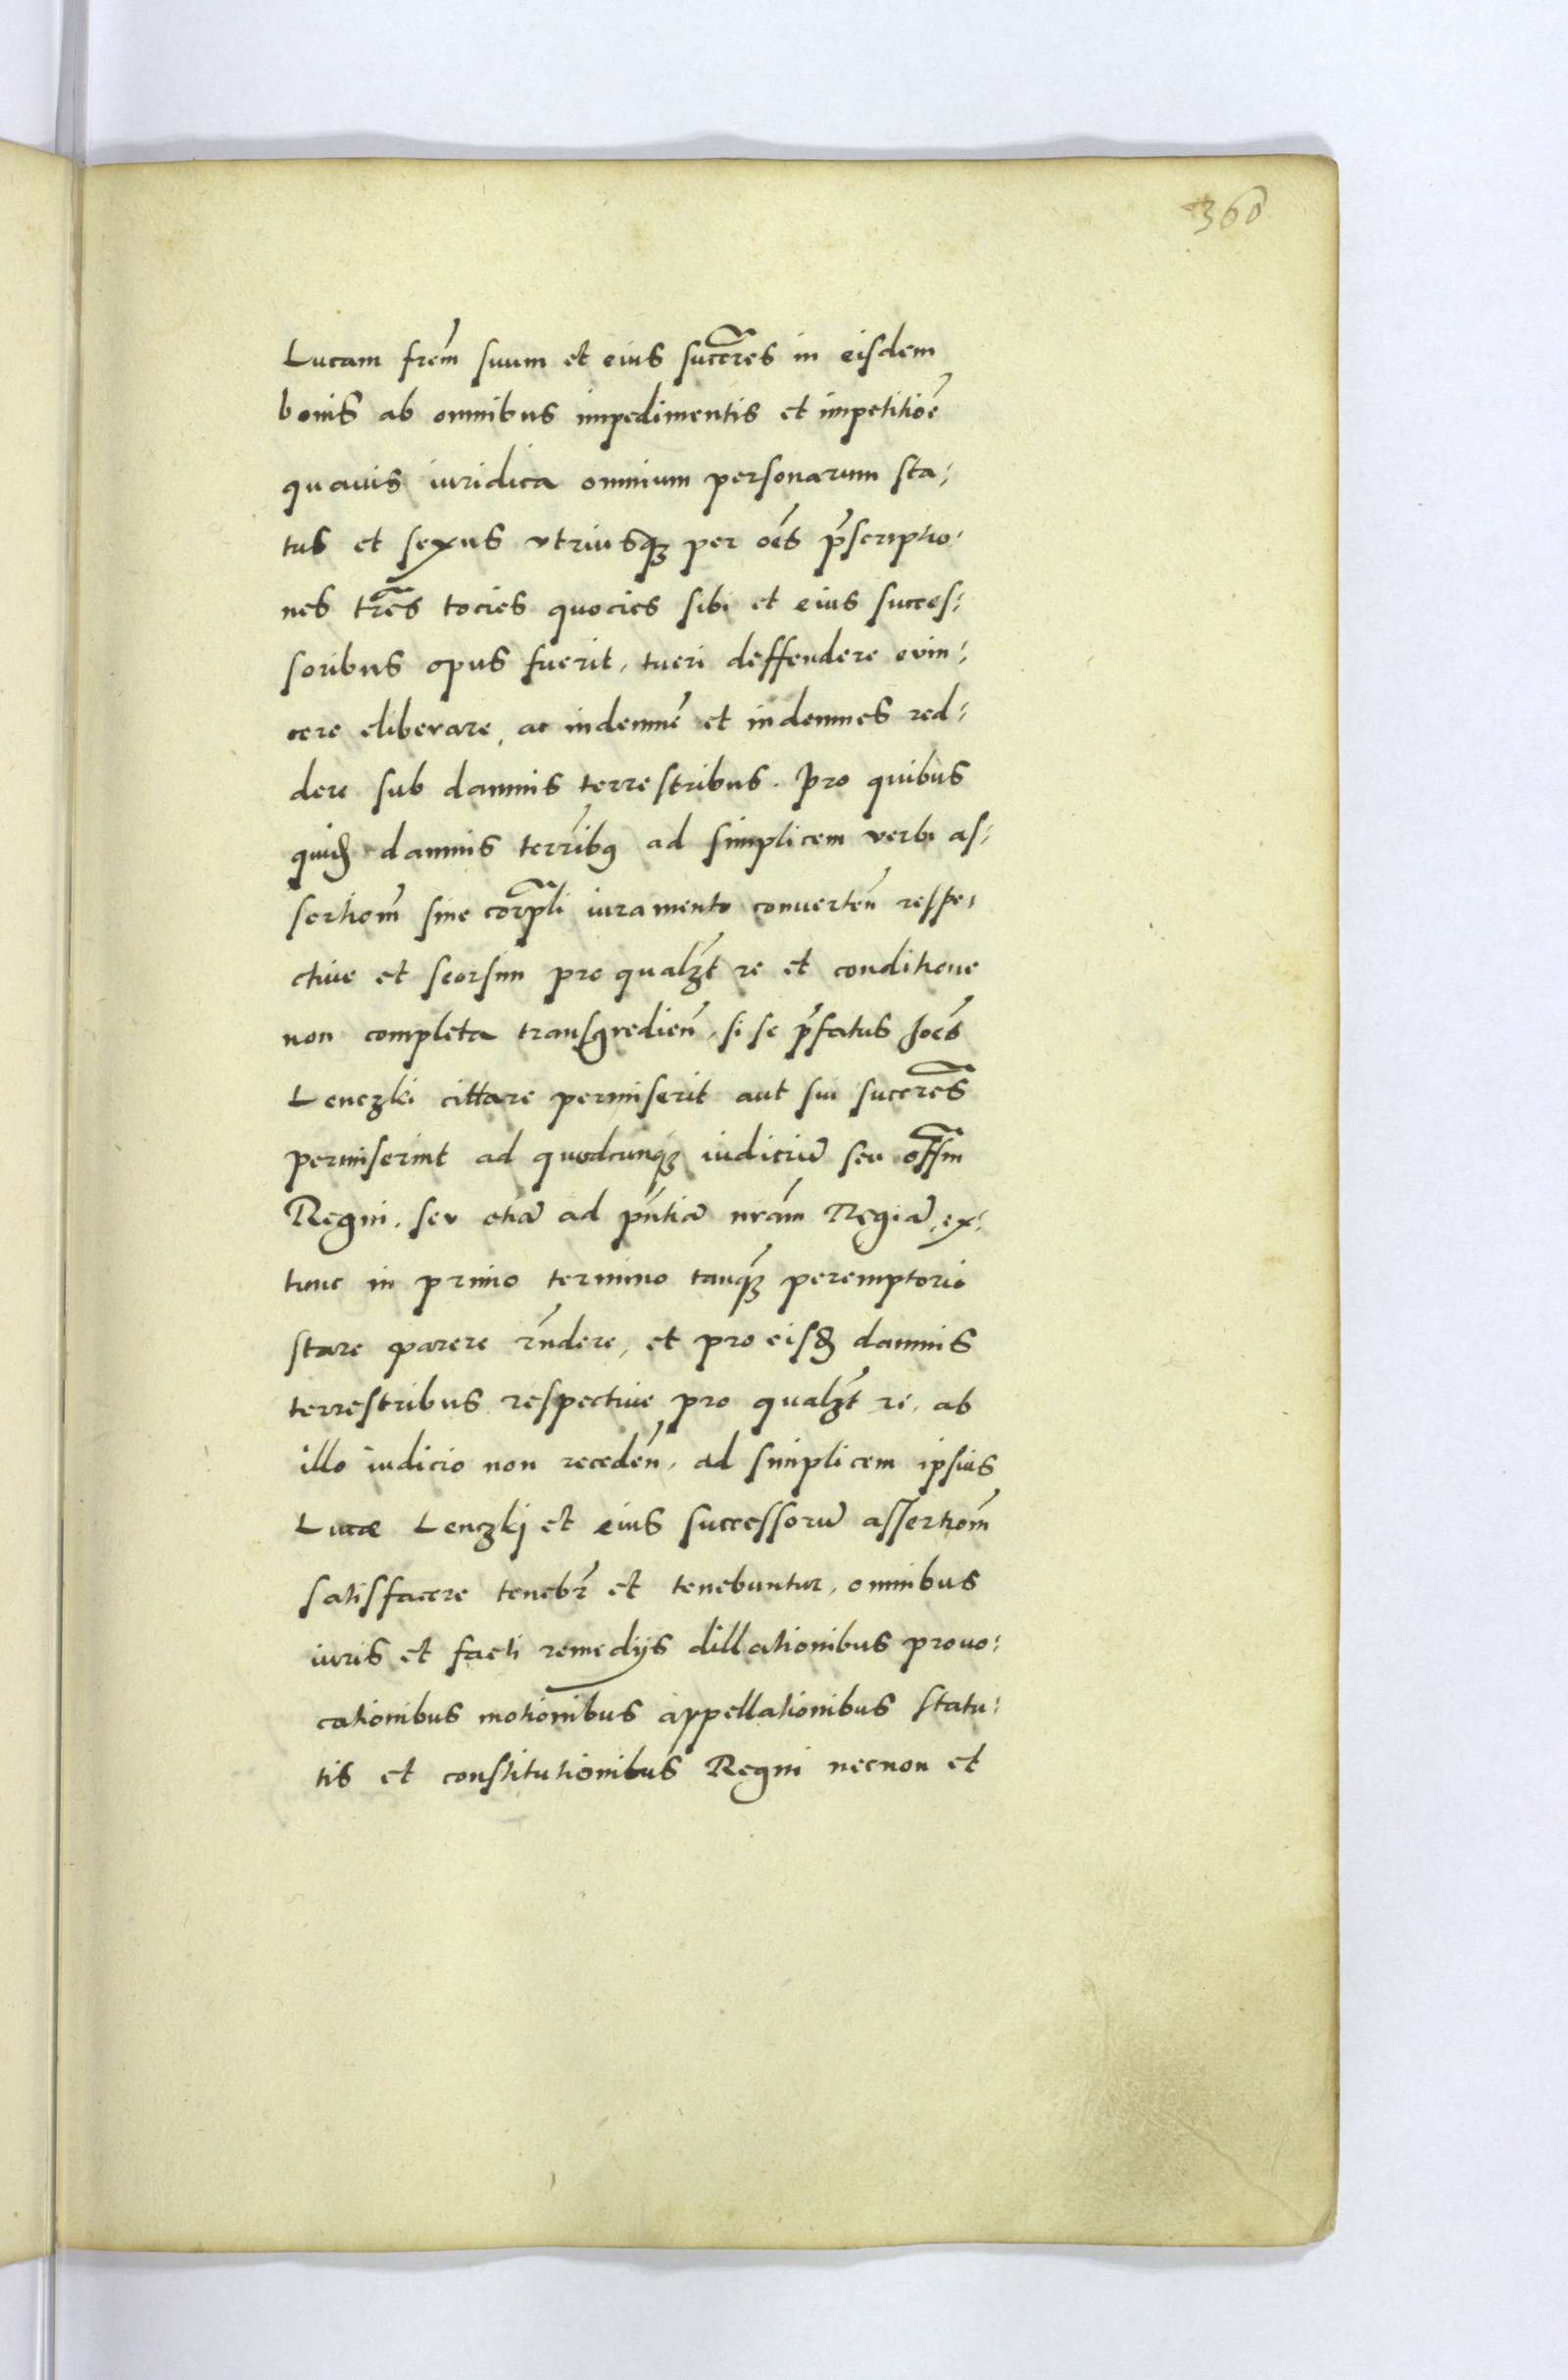 360
Lucam frem̃ suum et eius succres in eisdem
bonis ab omnibus impedimentis et impetitioẽ
quauis iuridica omnium personarum sta:
tus et sexus vtriusqʒ per oẽs p̃scriptio:
nes trẽs tocies quocies sibi et eius succes:
soribus opus fuerit, tueri deffendere evin:
cere eliberare, ac indemnẽ et indemnes red:
dere sub damnis terrestribus. Pro quibus
quiđ damnis terrĩbꝰ ad simplicem verbi as:
sertiom̃ sine corpli iuramento conuerteñ respe:
ctiue et seorsim pro qualʒt re et conditione
non completa transgredieñ, si se p̃fatus Joẽs
Lenczki cittare permiserit aut sui succres
permiserint ad quodcunqʒ iudiciũ seu offm
Regni, seu etiã ad pñtiã nrãm Regiã, ex:
tunc in primo termino tanqʒ peremptorio
stare parere rñdere, et pro eisđ damnis
terrestribus respectiue pro qualʒt re, ab
illo iudicio non recedeñ, ad simplicem ipsius
Lucæ Lenczkj et eius successorũ assertiom̃
satisfacere teneb̃r et tenebuntur, omnibus
iuris et facti remedijs dillationibus prouo:
cationibus motionibus appellationibus statu:
tis et constitutionibus Regni necnon et